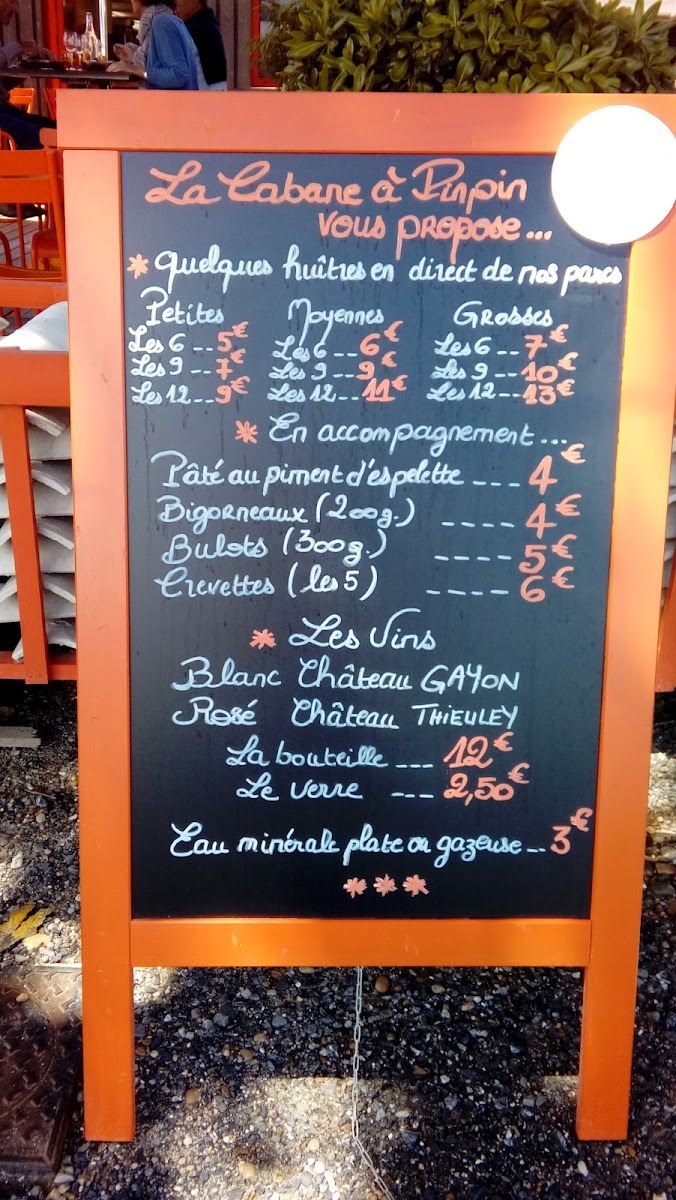 La Cabane à Pinpin
vous propose...
* quelques huîtres en direct de nos parcs
Petites Moyennes Grosses
Les 6 -- 5€ Les 6 -- 6€ Les 6 -- 7€
Les 9 -- 7€ Les 9 -- 9€ Les 9 -- 10€
Les 12 -- 9€ Les 12 -- 11€ Les 12 -- 13€
* En accompagnement...
Pâté au piment d'espelette --- 4€
Bigorneaux (200g.) ---- 4€
Bulots (300g.) ---- 5€
Crevettes (les 5) ---- 6€
* Les Vins
Blanc Château GAYON
Rosé Château THIEULEY
La bouteille --- 12€
Le verre --- 2,50€
Eau minérale plate ou gazeuse -- 3€
***